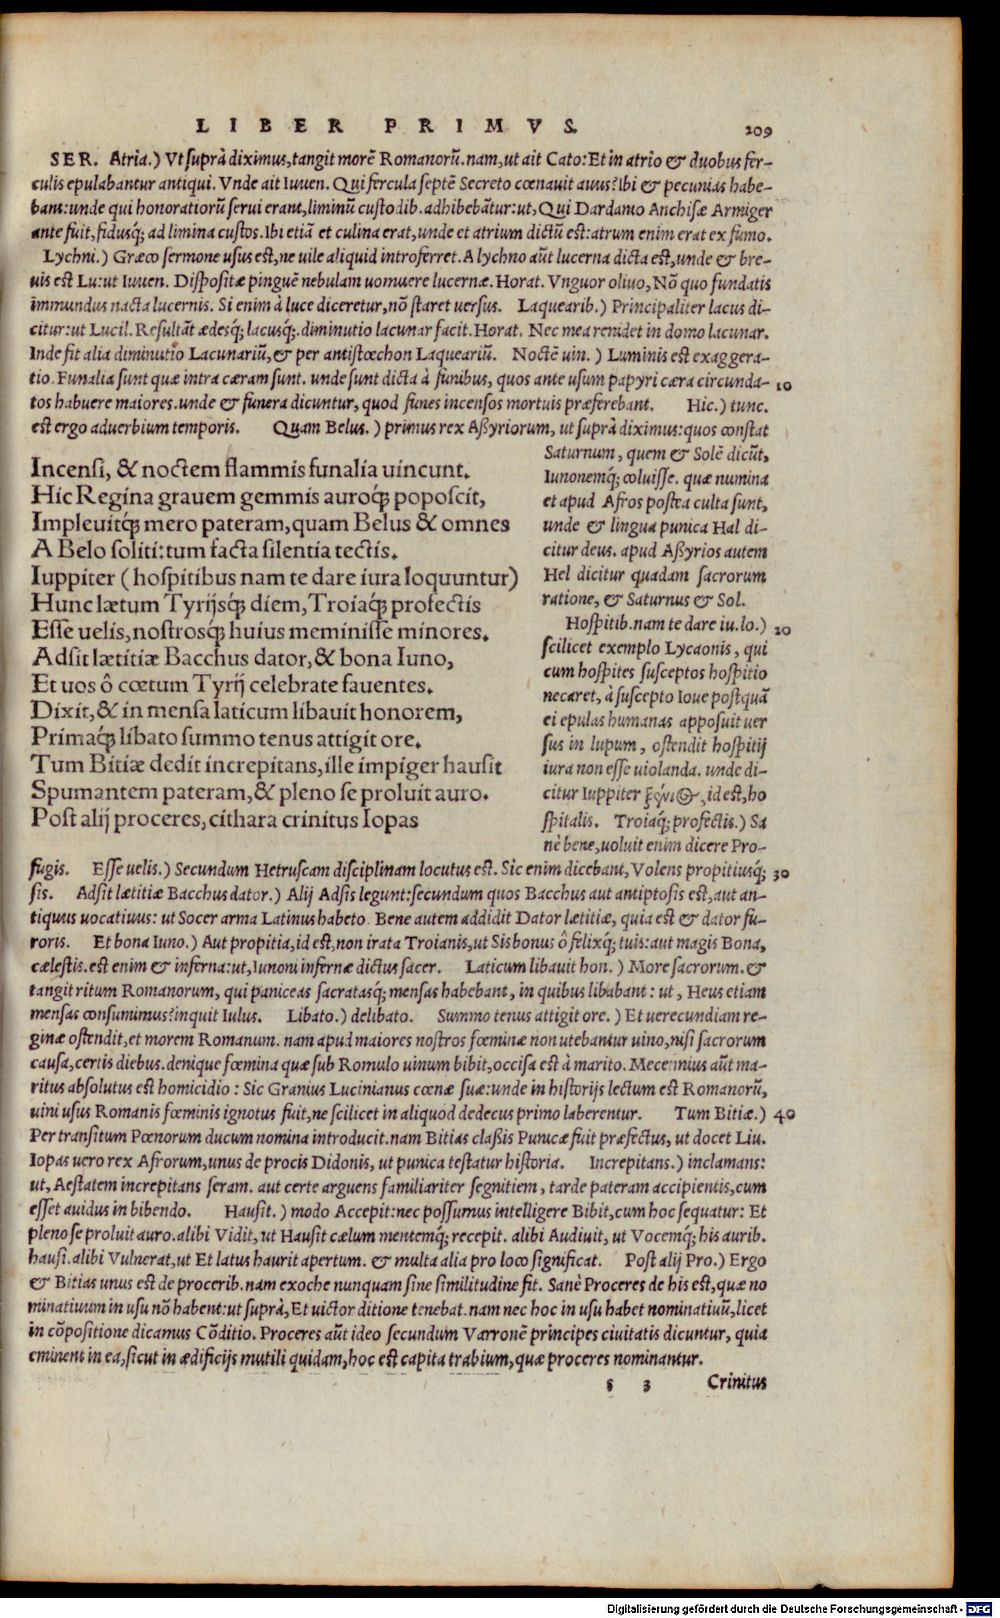 LIBER PRIMVS. 209
SER. Atria.) Vt suprà diximus, tangit morẽ Romanorũ. nam, ut ait Cato: Et in atrio & duobus fer-
culis epulabantur antiqui. Vnde ait Iuuen. Qui fercula septẽ Secreto cœnauit auus? Ibi & pecunias habe-
bant: unde qui honoratiorũ serui erant, liminũ custodib. adhibebãtur: ut, Qui Dardanio Anchisæ Armiger
ante fuit, fidusq; ad limina custos. Ibi etiã et culina erat, unde et atrium dictũ est: atrum enim erat ex fumo.
Lychni.) Græco sermone usus est, ne uile aliquid introferret. A lychno aũt lucerna dicta est, unde & bre-
uis est Lu: ut Iuuen. Dispositæ pinguẽ nebulam uomuere lucernæ. Horat. Vnguor oliuo, Nõ quo fundatis
immundus nacta lucernis. Si enim à luce diceretur, nõ staret uersus. Laquearib.) Principaliter lacus di-
citur: ut Lucil. Resultãt ædesq́;, lacusq́;. diminutio lacunar facit. Horat. Nec mea renidet in domo lacunar.
Inde fit alia diminutio Lacunariũ, & per antistœchon Laqueariũ. Noctẽ uin.) Luminis est exaggera-
tio. Funalia sunt quæ intra cæram sunt. unde sunt dicta à funibus, quos ante usum papyri cæra circunda- 10
tos habuere maiores. unde & funera dicuntur, quod funes incensos mortuis præferebant. Hic.) tunc.
est ergo aduerbium temporis. Quam Belus.) primus rex Aßyriorum, ut suprà diximus: quos constat
Incensi, & noctem flammis funalia uincunt.
Hic Regina grauem gemmis auroq́; poposcit,
Impleuitq́; mero pateram, quam Belus & omnes
A Belo soliti: tum facta silentia tectis.
Iuppiter (hospitibus nam te dare iura loquuntur)
Hunc lætum Tyrijsq́; diem, Troiaq́; profectis
Esse uelis, nostrosq́; huius meminisse minores.
Adsit lætitiæ Bacchus dator, & bona Iuno,
Et uos ô cœtum Tyrij celebrate fauentes.
Dixit, & in mensa laticum libauit honorem,
Primaq́; libato summo tenus attigit ore.
Tum Bitiæ dedit increpitans, ille impiger hausit
Spumantem pateram, & pleno se proluit auro.
Post alij proceres, cithara crinitus Iopas
Saturnum, quem & Solẽ dicũt,
Iunonemq́; coluisse. quæ numina
et apud Afros postea culta sunt,
unde & lingua punica Hal di-
citur deus. apud Aßyrios autem
Hel dicitur quadam sacrorum
ratione, & Saturnus & Sol.
Hospitib. nam te dare iu. lo.) 20
scilicet exemplo Lycaonis, qui
cum hospites susceptos hospitio
necaret, à suscepto Ioue postquã
ei epulas humanas apposuit uer
sus in lupum, ostendit hospitij
iura non esse uiolanda. unde di-
citur Iuppiter ξένιος, id est, ho
spitalis. Troiaq́; profectis.) Sa
nè bene, uoluit enim dicere Pro-
fugis. Esse uelis.) Secundum Hetruscam disciplinam locutus est. Sic enim dicebant, Volens propitiusq́; 30
sis. Adsit lætitiæ Bacchus dator.) Alij Adsis legunt: secundum quos Bacchus aut antiptosis est, aut an-
tiquus uocatiuus: ut Socer arma Latinus habeto. Bene autem addidit Dator lætitiæ, quia est & dator fu-
roris. Et bona Iuno.) Aut propitia, id est, non irata Troianis, ut Sis bonus ô felixq́; tuis: aut magis Bona,
cælestis. est enim & inferna: ut, Iunoni infernæ dictus sacer. Laticum libauit hon.) More sacrorum. &
tangit ritum Romanorum, qui paniceas sacratasq́; mensas habebant, in quibus libabant: ut, Heus etiam
mensas consumimus? inquit Iulus. Libato.) delibato. Summo tenus attigit ore.) Et uerecundiam re-
ginæ ostendit, et morem Romanum. nam apud maiores nostros fœminæ non utebantur uino, nisi sacrorum
causa, certis diebus. denique fœmina quæ sub Romulo uinum bibit, occisa est à marito. Mecennius aũt ma-
ritus absolutus est homicidio: Sic Granius Lucinianus cœnæ suæ: unde in historijs lectum est Romanorũ,
uini usus Romanis fœminis ignotus fuit, ne scilicet in aliquod dedecus primo laberentur. Tum Bitiæ.) 40
Per transitum Pœnorum ducum nomina introducit. nam Bitias claßis Punicæ fuit præfectus, ut docet Liu.
Iopas uero rex Afrorum, unus de procis Didonis, ut punica testatur historia. Increpitans.) inclamans:
ut, Aestatem increpitans seram. aut certe arguens familiariter segnitiem, tarde pateram accipientis, cum
esset auidus in bibendo. Hausit.) modo Accepit: nec possumus intelligere Bibit, cum hoc sequatur: Et
pleno se proluit auro. alibi Vidit, ut Hausit cælum mentemq́; recepit. alibi Audiuit, ut Vocemq́; his aurib.
hausi. alibi Vulnerat, ut Et latus haurit apertum. & multa alia pro loco significat. Post alij Pro.) Ergo
& Bitias unus est de procerib. nam exoche nunquam sine similitudine fit. Sanè Proceres de his est, quæ no
minatiuum in usu nõ habent: ut suprà, Et uictor ditione tenebat. nam nec hoc in usu habet nominatiuũ, licet
in cõpositione dicamus Cõditio. Proceres aũt ideo secundum Varronẽ principes ciuitatis dicuntur, quia
eminent in ea, sicut in ædificijs mutili quidam, hoc est capita trabium, quæ proceres nominantur.
s 3 Crinitus
Digitalisierung gefördert durch die Deutsche Forschungsgemeinschaft - DFG